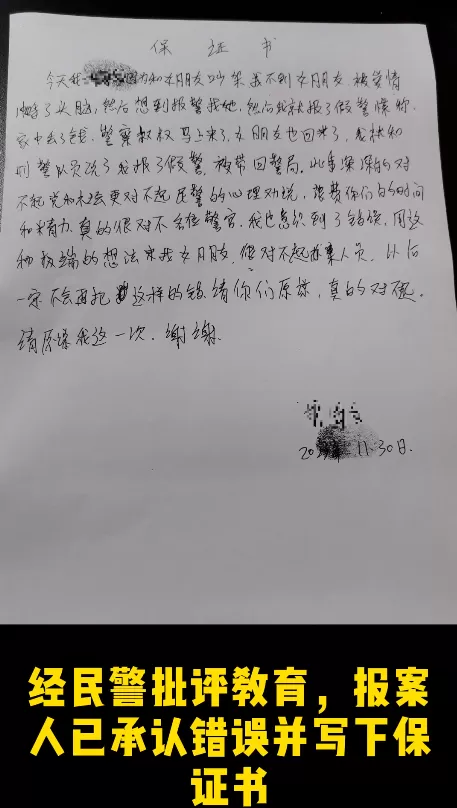 保 证 书
今天我因为和女朋友吵架 找不到女朋友 被爱情
冲昏了头脑，然后想到报警找她，然后我就报了假警
家中丢了钱，警察叔叔马上来了，女朋友也回来了，我就和
出警队员说了我报了假警，被带回警局，此事深深的对
不起党和社会更对不起民警的心理劝说，浪费你们的时间
和精力，真的很对不起各位警官，我也意识到了错误，用这
种极端的想法来找女朋友，很对不起办案人员，以后
一定不会再犯这样的错，请你们原谅，真的对不起。
请原谅我这一次，谢谢。
20 11.30日.
经民警批评教育，报案
人已承认错误并写下保
证书